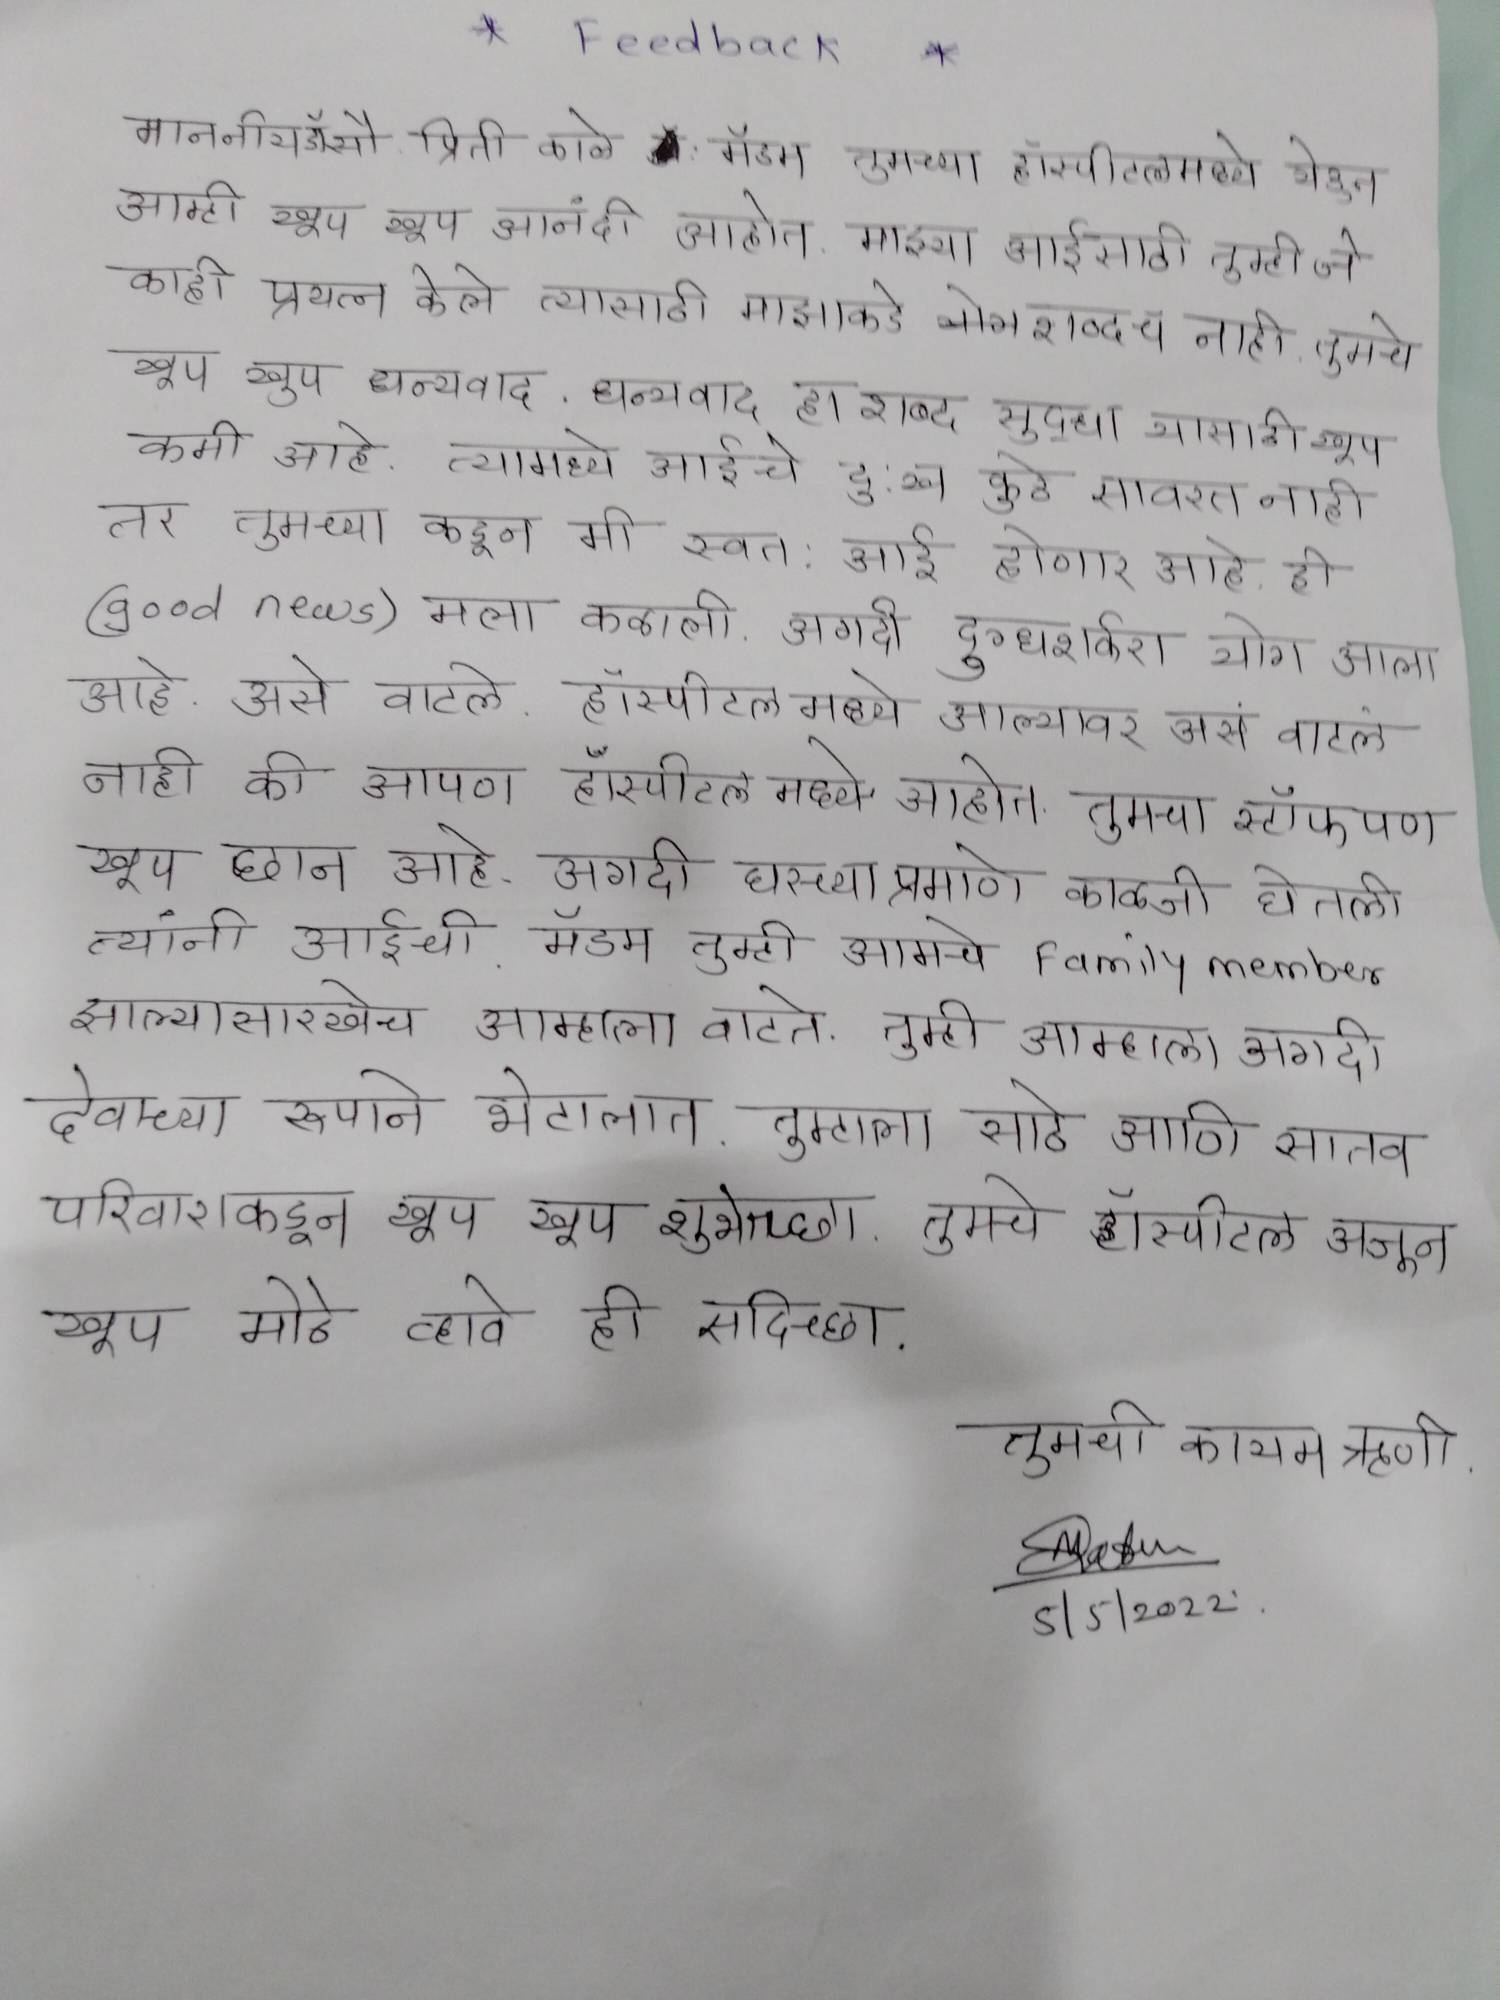 * Feedback *
माननीय डॉ सौ. प्रिती काळे : मॅडम तुमच्या हॉस्पीटलमध्ये येऊन
आम्ही खूप खूप आनंदी आहोत. माझ्या आईसाठी तुम्ही जे
काही प्रयत्न केले त्यासाठी माझाकडे योग्य शब्दच नाही. तुमचे
खूप खुप धन्यवाद. धन्यवाद हा शब्द सुद्धा यासाठी खूप
कमी आहे. त्यामध्ये आईचे दु:ख कुठे सावरत नाही
तर तुमच्या कडून मी स्वत: आई होणार आहे. ही
(good news) मला कळाली. अगदी दुग्धशर्करा योग आला
आहे. असे वाटले. हॉस्पीटल मध्ये आल्यावर असं वाटलं
नाही की आपण हॉस्पीटल मध्ये आहोत. तुमचा स्टॉफ पण
खूप छान आहे. अगदी घरच्याप्रमाणे काळजी घेतली
त्यांनी आईची. मॅडम तुम्ही आमचे Family member
झाल्यासारखेच आम्हाला वाटते. तुम्ही आम्हाला अगदी
देवाच्या रूपाने भेटालात. तुम्हाला साठे आणि सातव
परिवाराकडून खूप खूप शुभेच्छा. तुमचे हॉस्पीटल अजून
खूप मोठे व्हावे ही सदिच्छा.
तुमची कायम ऋणी.
5/5/2022.